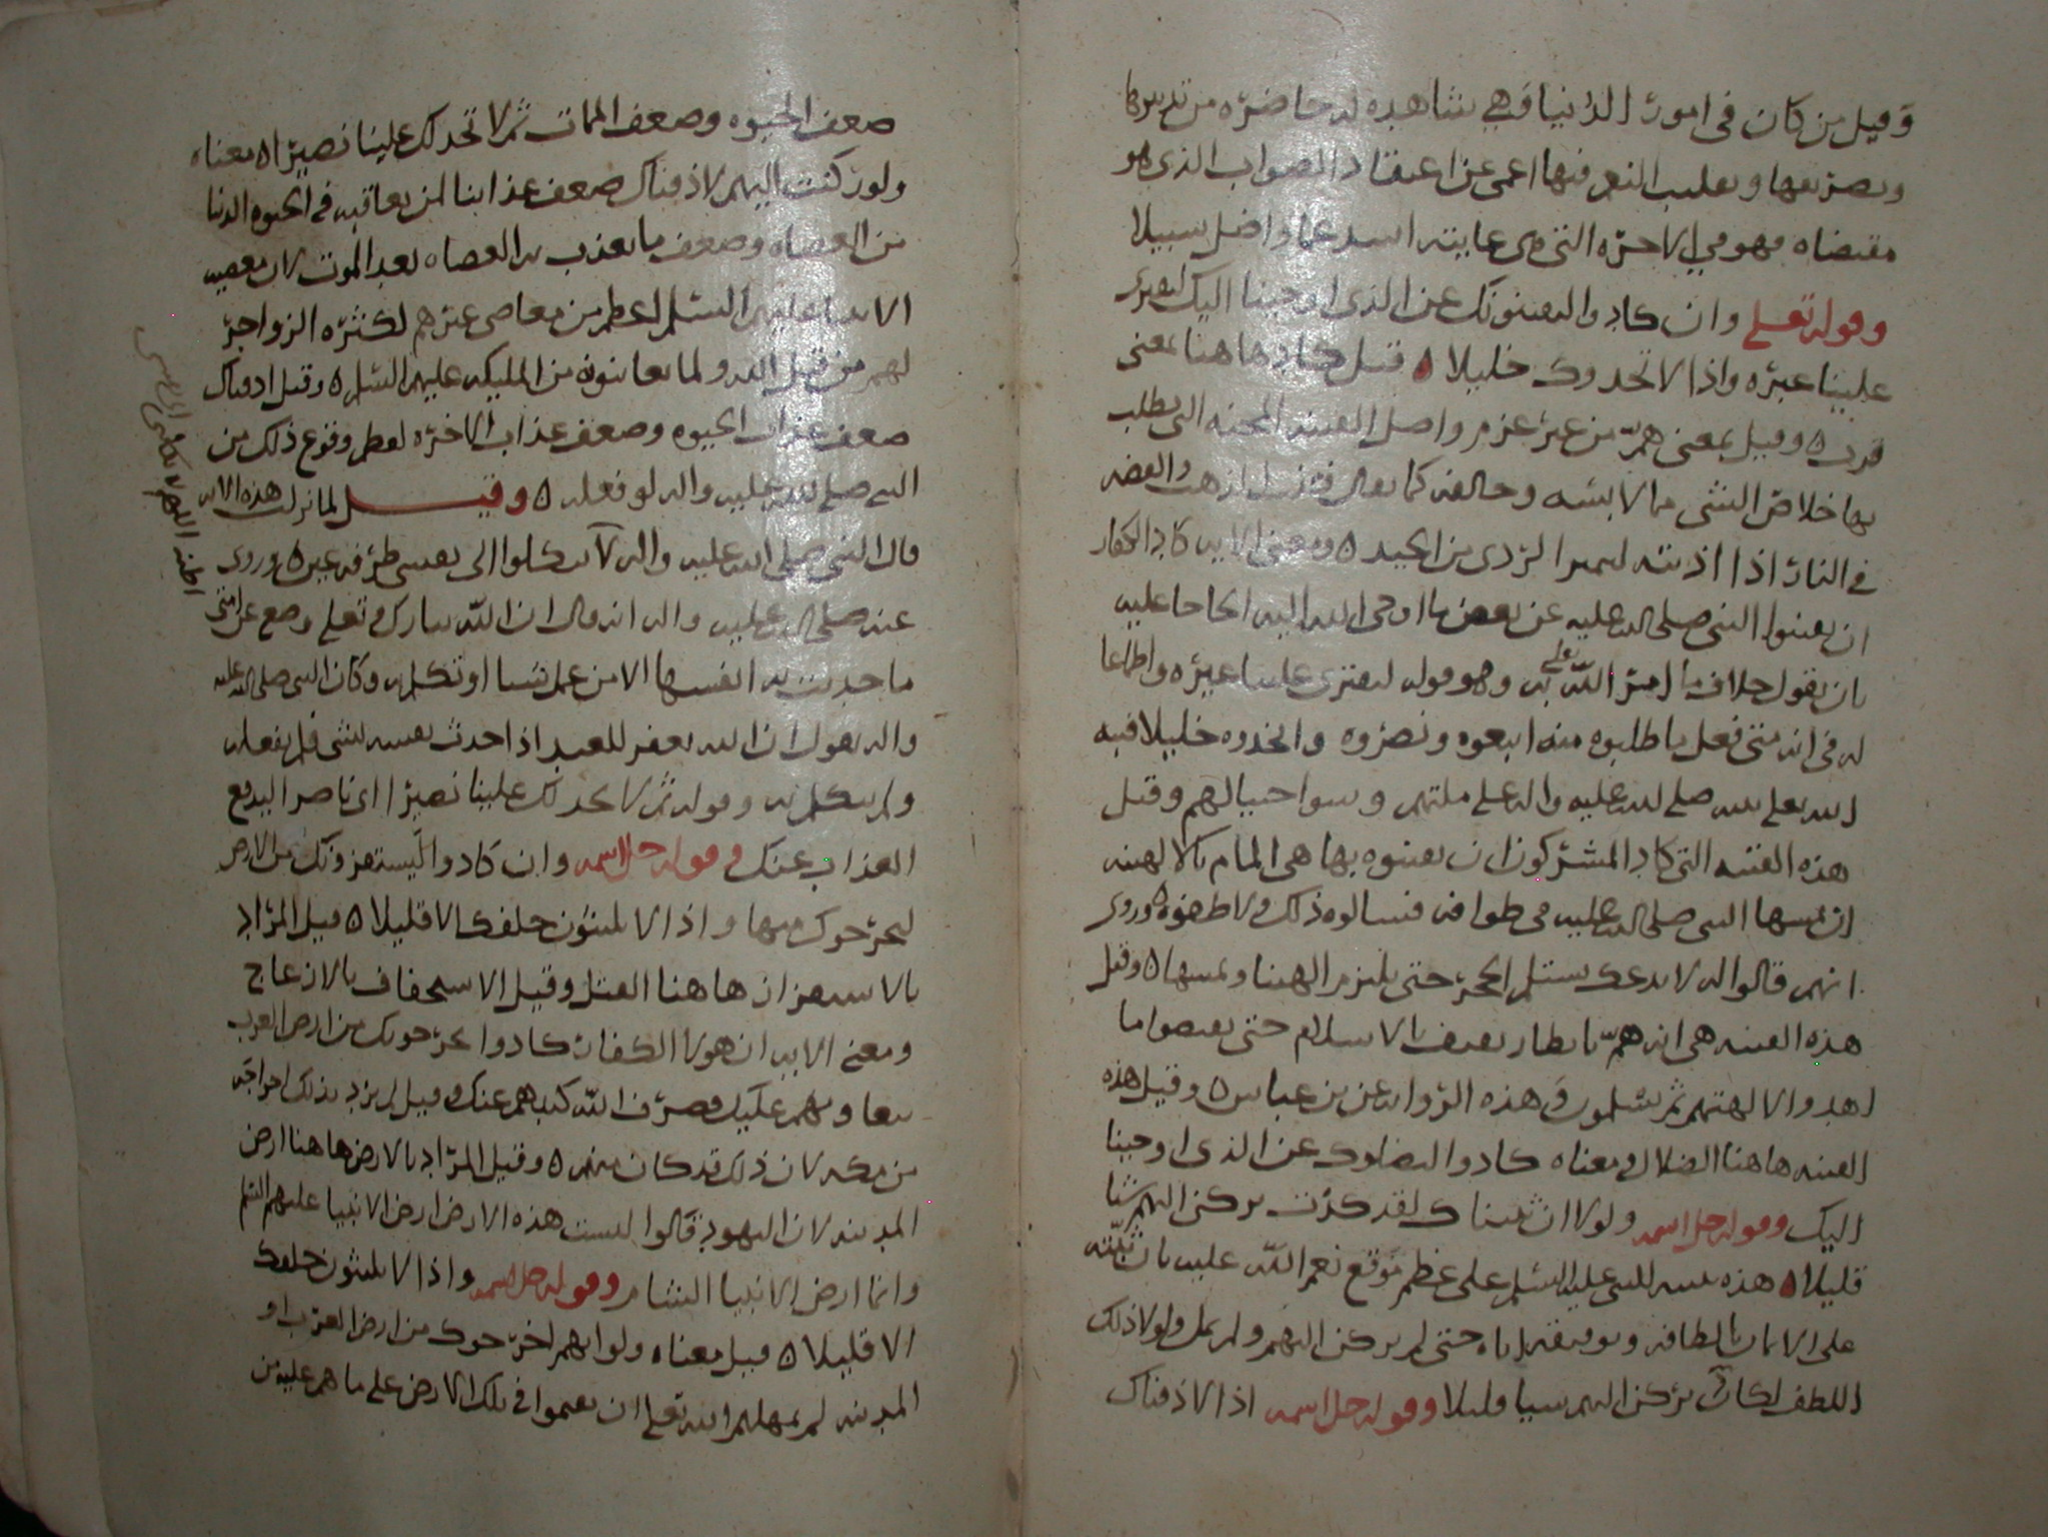 وقيل من كان في امور الدنيا وهي شاهده له حاضره من تدبيرها
وتصريفها وتقليب النعم فيها اعمى عن اعتقاد الصواب الذي هو
مقتضاه فهو في الاخره التي هي غايته اشد عما واضل سبيلا
وقوله تعلى وان كادوا ليفتنونك عن الذي اوحينا اليك لتفتري
علينا غيره واذا لاتخذوك خليلا ٥ قيل كاد هاهنا بمعنى
قرب ٥ وقيل بمعنى همّ من غير عزم واصل الفتنه المحنه التي يطلب
بها خلاص الشي مما لابسه وخالفه كما يقال فتنت الذهب والفضه
في النار اذا اذبته ليميز الردى من الجيد ٥ ومعنى الايه كاد الكفار
ان يفتنوا النبي صلى الله عليه عن بعض ما اوحى الله اليه الحاحا عليه
بان يقول خلاف ما امر الله تعلى به وهو قوله لتفترى علينا غيره واطماعا
له في انه متى فعل ما طلبوه منه اتبعوه ونصروه واتخذوه خليلا فيه
الله تعلى صلى الله عليه واله على ملتهم وسوا حبالهم وقيل
هذه الفتنه التي كاد المشركون ان يفتنوه بها هي المام بالالهه
ان يمسها النبي صلى الله عليه في طوافه فسالوه ذلك ولاطفوه ٥ وروى
انهم قالوا له لا ندعك تستلم الحجر حتى يلتزم الهتنا وتمسها ٥ وقيل
هذه الفتنه هي انه همّ بانظار ثقيف بالاسلام حتى يقبضوا ما
اهدوا لالهتهم ثم يسلمون في هذه الروايه عن بن عباس ٥ وقيل هذه
الفتنه هاهنا الضلال ومعناه كادوا ليضلوك عن الذي اوحينا
اليك وقوله جل اسمه ولولا ان ثبتناك لقد كدت تركن اليهم شيا
قليلا ٥ هذه للنبي عليه السلم على عظم موقع نعم الله عليه بان ثبّته
على الايمان بالطافه وتوفيقه اياه حتى لم يركن اليهم ولم يمل ولولا ذلك
اللطف لكان يركن اليهم سيا قليلا وقوله جل اسمه اذا لاذقناك
ضعف الحيوه وضعف الممات ثم لا تجد لك علينا نصيرا ٥ معناه
ولو ركنت اليهم لاذقناك ضعف عذابنا لمن يعاقبه في الحيوه الدنيا
من العصاه وضعف ما يعذب به العصاه بعد الموت لان معصيه
الانبيا عليهم السلم اعظم من معاصي غيرهم لكثره الزواجر
لهم من قبل الله ولما يعاينونه من المليكه عليهم السلم ٥ وقيل اذقناك
ضعف عذاب الحيوه وضعف عذاب الاخره لعظم وقوع ذلك من
النبي صلى الله عليه واله لو فعله ٥ وقيل لما نزلت هذه الايه
قال النبي صلى الله عليه واله لا تكلوا الى نفسي طرفه عين ٥ وروى
عنه صلى الله عليه واله انه قال ان الله تبارك وتعلى وضع عن امتي
ما حدثت به انفسها الا من عمل شيا او تكلم به وكان النبي صلى الله عليه
واله يقول ان الله يغفر للعبد اذا حدث نفسه بشي فلم يفعله
ولم يتكلم به وقوله ثم لا تجد لك علينا نصيرا اى ناصرا ليدفع
العذاب عنك وقوله جل اسمه وان كادوا ليستفزونك من الارض
ليخرجوك منها واذا لا يلبثون خلفك الا قليلا ٥ قيل المراد
بالاستفزاز هاهنا القتل وقيل الاستخفاف بالازعاج
ومعنى الايه ان هولا الكفار كادوا يخرجونك من ارض العرب
تعاونهم عليك فصرف الله كيدهم عنك وقيل لم يرد بذلك اخراجه
من مكه لان ذلك قد كان منهم ٥ وقيل المراد بالارض هاهنا ارض
المدينه لان اليهود قالوا ليست هذه الارض ارض الانبيا عليهم السلم
وانما ارض الانبيا الشام وقوله جل اسمه واذا لا يلبثون خلفك
الا قليلا ٥ قيل معناه ولو انهم اخرجوك من ارض العرب او
المدينه لم يمهلهم الله تعلى ان يقيموا في تلك الارض على ما هم عليه من
اللهم لا تكلني الى نفسي